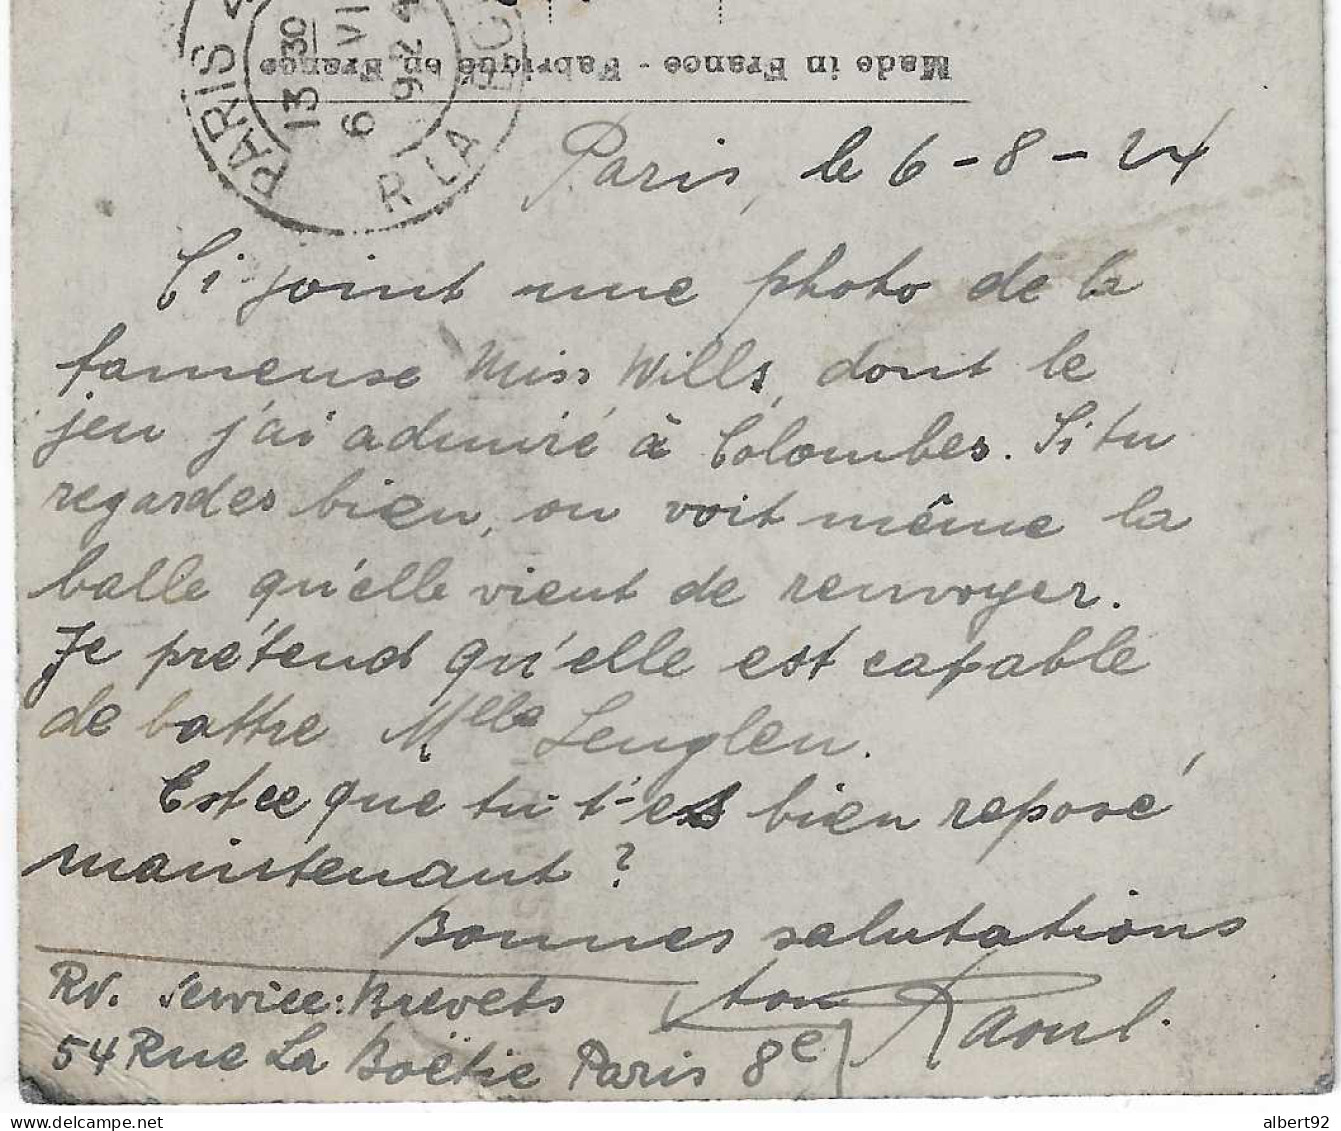 PARIS
13 30
6 VI
924
R LA
Made in France - Fabriqué en France
Paris, le 6-8-24
Ci joint une photo de la
fameuse Miss Wills, dont le
jeu j'ai admiré à Colombes. Si tu
regardes bien, on voit même la
balle qu'elle vient de renvoyer.
Je prétend qu'elle est capable
de battre Mlle Lenglen.
Est ce que tu t'es bien reposé
maintenant ?
Bonnes salutations
ton Raoul.
Rv. Service: Brevets
54 Rue La Boëtie Paris 8e
albert92